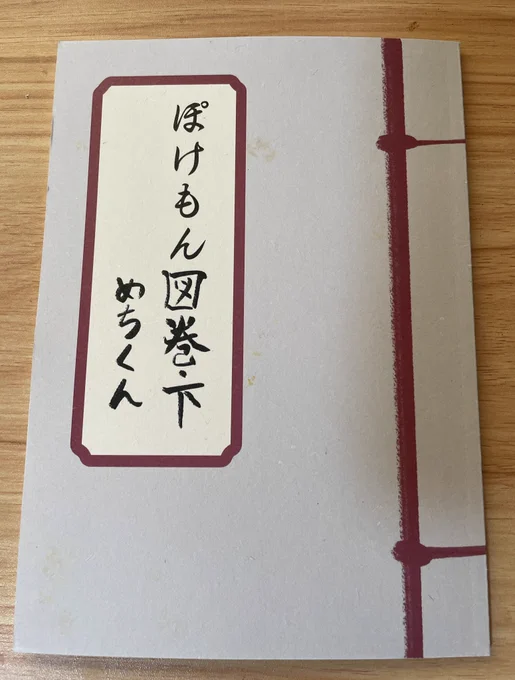 ぽけもん図巻・下
めちくん